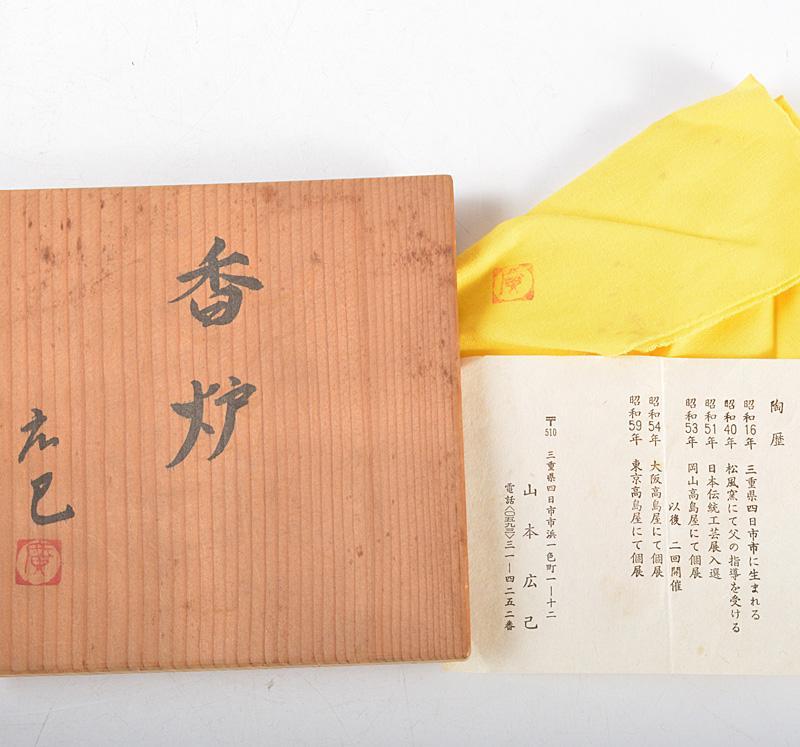 香炉
広巳
廣
廣
陶歴
昭和16年 三重県四日市市に生まれる
昭和40年 松風窯にて父の指導を受ける
昭和51年 日本伝統工芸展入選
昭和53年 岡山高島屋にて個展
以後 二回開催
昭和54年 大阪高島屋にて個展
昭和59年 東京高島屋にて個展
〒510 三重県四日市市浜一色町一ー十二
山本広己
電話〈〇五九三〉三一ー四二五二番